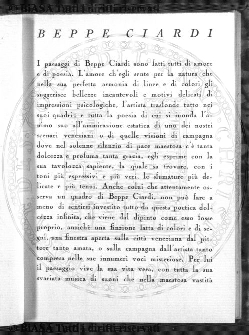 BEPPE CIARDI
I paesaggi di Beppe Ciardi sono fatti tutti di amore
e di poesia. L'amore ch'egli sente per la natura che
nella sua perfetta armonia di linee e di colori gli
suggerisce bellezze incantevoli e motivi delicati di
impressioni psicologiche, l'artista trasfonde tutto nei
suoi quadri; e tutta la poesia di cui si inonda l'a-
nimo suo all'ammirazione estatica di uno dei nostri
scenari veneziani o di quelle visioni di campagna
dove nel solenne silenzio di pace maestosa c'è tanta
dolcezza e profuma tanta grazia, egli esprime con la
sua tavolozza sapiente, la quale sa trovare, con i
toni più espressivi e più veri, le sfumature più de-
licate e più tenui. Anche colui che attentamente os-
serva un quadro di Beppe Ciardi, non può fare a
meno di sentirsi investito tutto di questa poetica dol-
cezza infinita, che viene dal dipinto come esso fosse
proprio, anzichè una finzione fatta di colori e di se-
gni, una finestra aperta sulla città veneziana dal pit-
tore amata, o sulla campagna dall'artista tanto
compresa nelle sue innumeri voci misteriose. Per lui
il paesaggio vive la sua vita vera, con tutta la sua
svariata musica di suoni che nella maestosa vastità